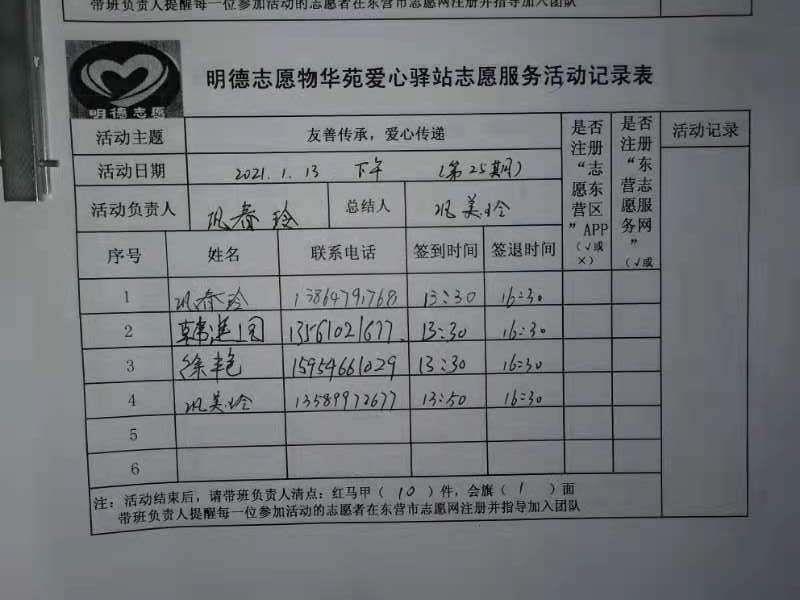 带班负责人提醒每一位参加活动的志愿者在东营市志愿网注册并指导加入团队
明德志愿
明德志愿物华苑爱心驿站志愿服务活动记录表
活动主题 友善传承，爱心传递 是否注册“志愿东营区”APP（√或×） 是否注册“东营志愿服务网”（√或 活动记录
活动日期 2021.1.13 下午 （第25期）
活动负责人 巩春玲 总结人 巩美玲
序号 姓名 联系电话 签到时间 签退时间
1 巩春玲 13864791768 13:30 16:30
2 韩 13561021677 13:30 16:30
3 徐艳 15954661029 13:30 16:30
4 巩美玲 13589972677 13:50 16:30
5
6
注：活动结束后，请带班负责人清点：红马甲（ 10 ）件，会旗（ 1 ）面
带班负责人提醒每一位参加活动的志愿者在东营市志愿网注册并指导加入团队